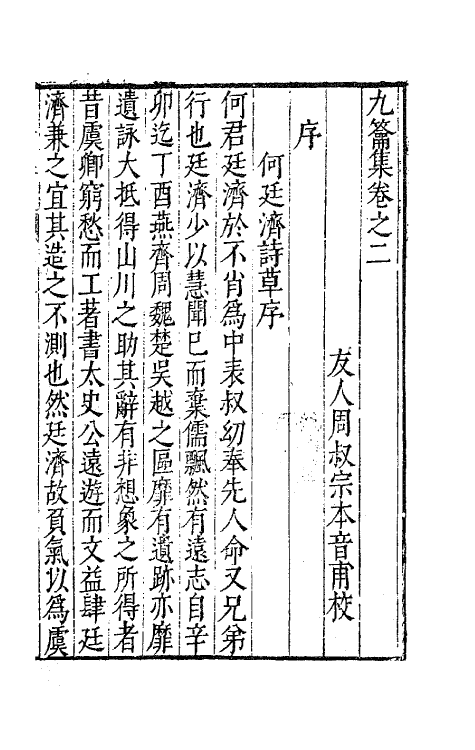 九籥集卷之二
友人周叔宗本音甫校
序
何廷濟詩草序
何君廷濟於不肖爲中表叔幼奉先人命又兄弟
行也廷濟少以慧聞已而棄儒飄然有遠志自辛
卯迄丁酉燕齊周魏楚吳越之區靡有遺跡亦靡
遺詠大抵得山川之助其辭有非想象之所得者
昔虞卿窮愁而工著書太史公遠遊而文益肆廷
濟兼之宜其造之不測也然廷濟故負氣以爲虞